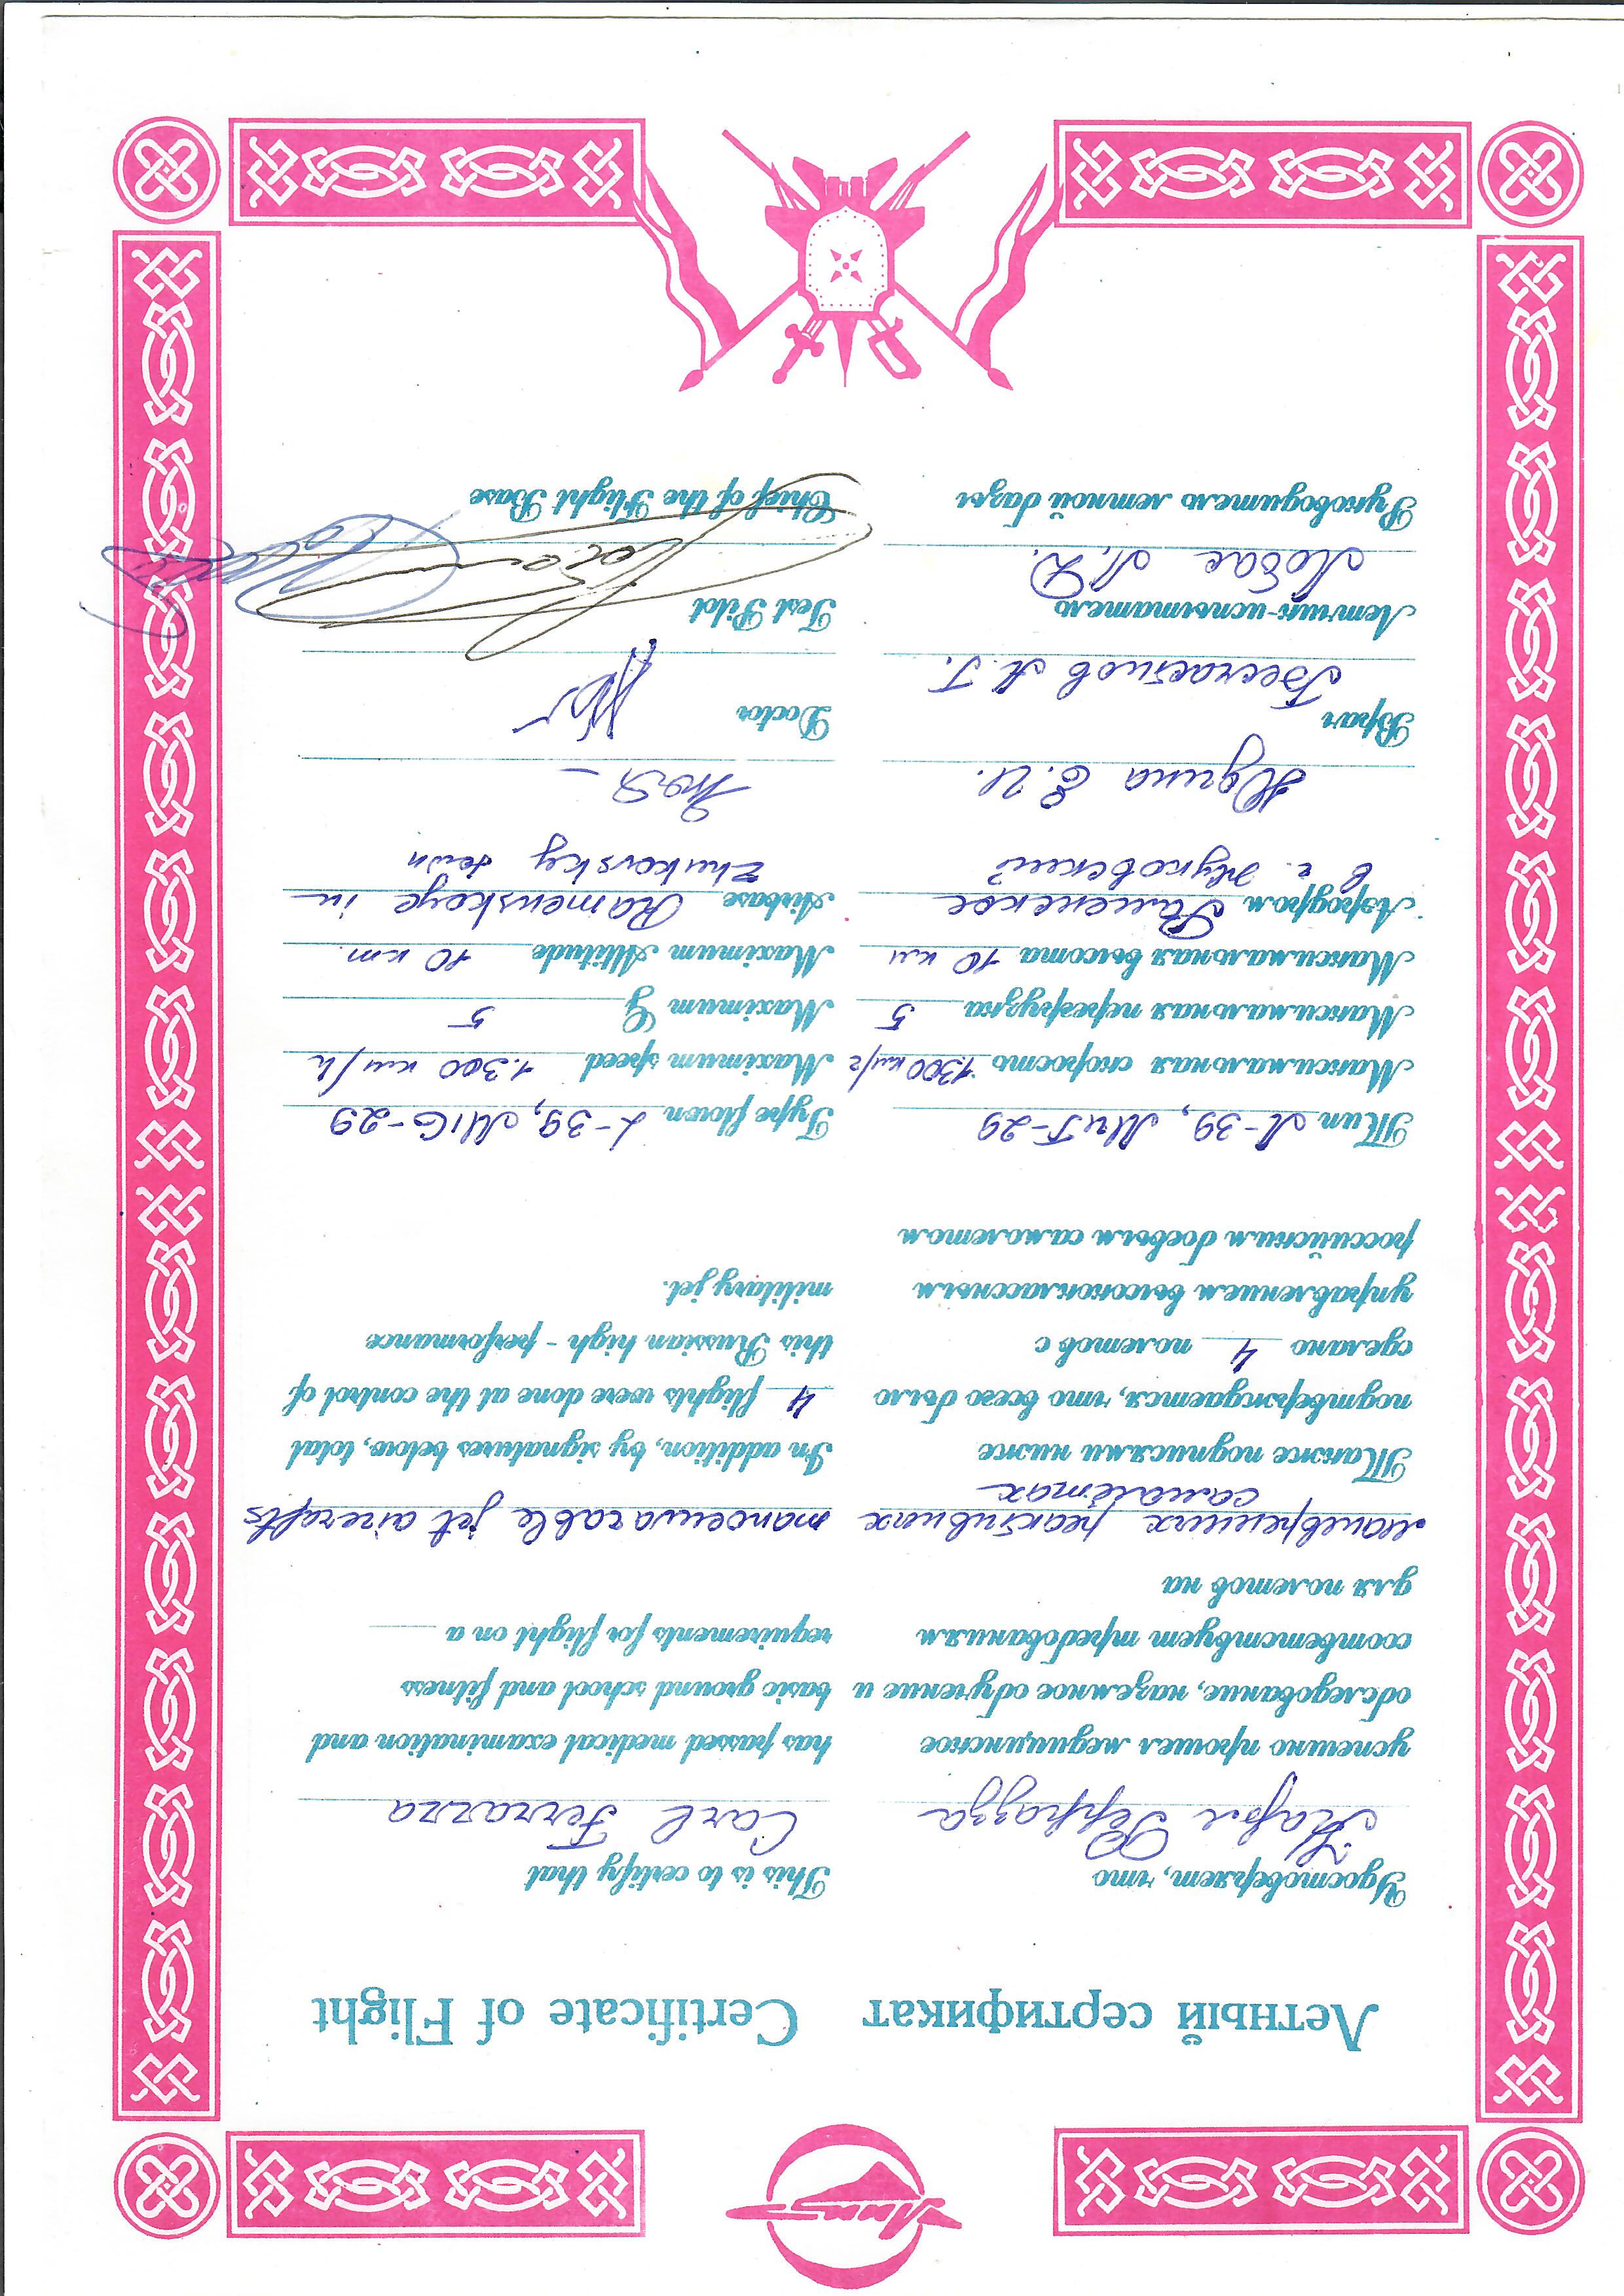 Летный сертификат
Удостоверяет, что
Карл Ферразза
успешно прошел медицинское
обследование, наземное обучение и
соответствует требованиям
для полетов на
маневренных реактивных
самолётах
Также подписями ниже
подтверждается, что всего было
сделано 4 полетов с
управлением высококлассным
российским боевым самолетом
Тип Л-39, МиГ-29
Максимальная скорость 1300 км/г
Максимальная перегрузка 5
Максимальная высота 10 км
Аэродром Раменское
в г. Жуковский
Юдина Е.И.
Врач
Бесчастнов А.Г.
Летчик-испытатель
Лобас
Руководитель летной базы
Certificate of Flight
This is to certify that
Carl Ferrazza
has passed medical examination and
basic ground school and fitness
requirements for flight on a
manoeuvarable jet aircrafts
In addition, by signatures below, total,
4 flights were done at the control of
this Russian high - performance
military jet.
Type flown L-39, MIG-29
Maximum speed 1.300 km/h
Maximum G 5
Maximum Altitude 10 km.
Airbase Ramenskoye in
Zhukovsky town
Doctor
Test Pilot
Chief of the Flight Base